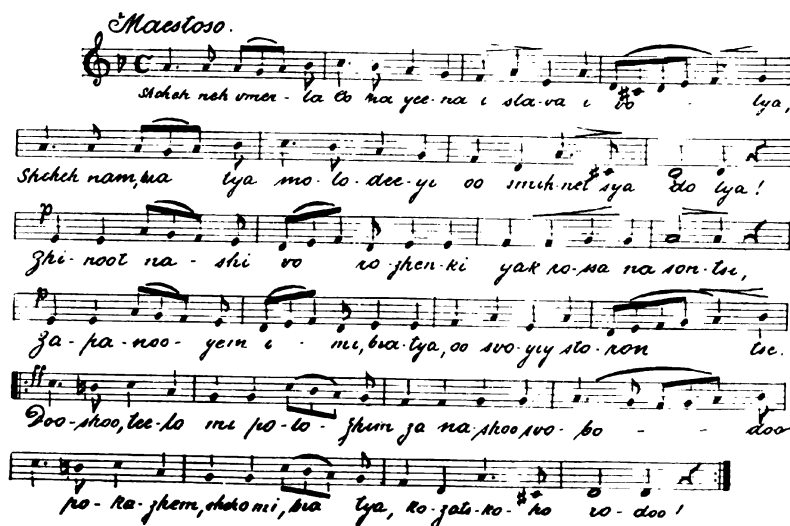 Maestoso.
Shcheh neh vmer-la Oo na yee-na i sla-va i vo - lya,
Shcheh nam, bra tya mo-lo-dee-yi oo smih-net sya do lya!
p
Zhi-noot na-shi vo ro-zhen-ki yak ro-ssa na son-tsi,
p
Za-pa-noo-yem i - mi, bra-tya, oo svo-yiy sto-ron tse.
ff
Doo-shoo, tee-lo mi po-lo-zhim za na-shoo svo-bo - - doo
po-ka-zhem, shcho mi, bra tya, ko-zats-ko-ho ro-doo!